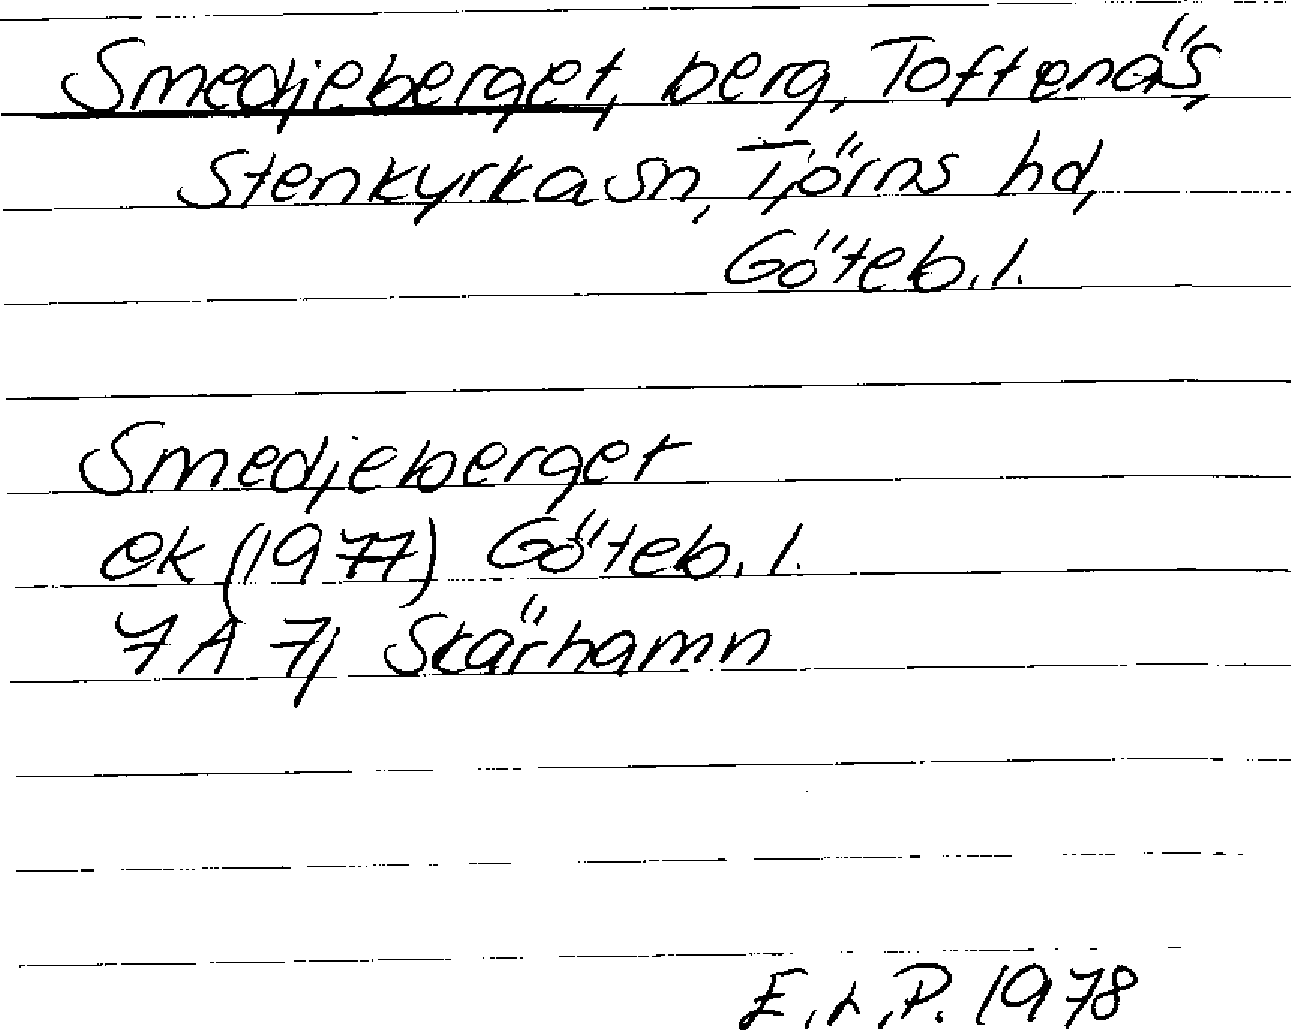 Smedjeberget, berg, Toftenäs,
Stenkyrka sn, Tjörns hd,
Göteb. l.
Smedjeberget
ek (1977) Göteb. l.
7A 7j Skärhamn
E.L.P. 1978